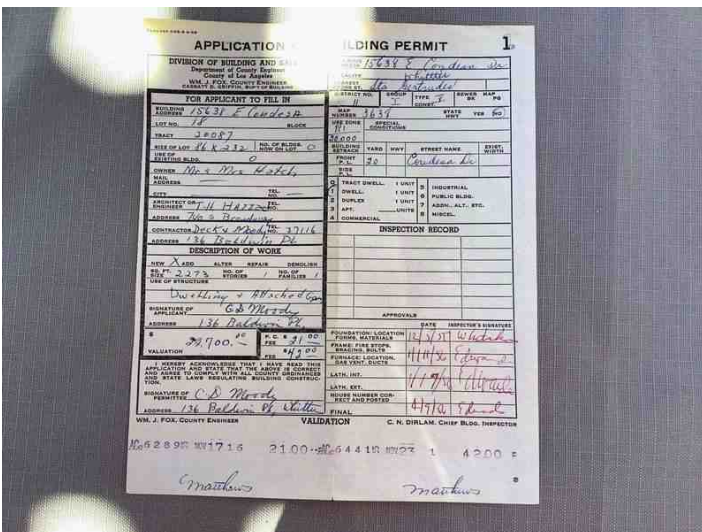 APPLICATION
ILDING PERMIT
1
DIVISION OF BUILDING AND
Department of County Engineer
County of Los Angeles
WM. J. FOX, COUNTY ENGINEER
CASSATT D. GRIFFIN, SUPT OF BUILDING
FOR APPLICANT TO FILL IN
BUILDING ADDRESS 15638 E Condesa
LOT NO. 18 BLOCK
TRACT 20087
SIZE OF LOT 86 X 232 NO. OF BLDGS. NOW ON LOT 0
USE OF EXISTING BLDG. 0
OWNER Mr & Mrs Hatch
MAIL ADDRESS
CITY TEL. NO.
ARCHITECT OR ENGINEER T.H. TEL. NO.
ADDRESS Broadway
CONTRACTOR Deck & Moody TEL. NO. 27116
ADDRESS 136 Baldwin Pl.
DESCRIPTION OF WORK
NEW X ADD ALTER REPAIR DEMOLISH
SQ. FT. SIZE 2273 NO. OF STORIES 1 NO. OF FAMILIES 1
USE OF STRUCTURE
Dwelling & Attached
SIGNATURE OF APPLICANT C D Moody
ADDRESS 136 Baldwin Pl.
$
VALUATION 22,700.00
P.C. $ FEE 21 00
FEE $42 00
I HEREBY ACKNOWLEDGE THAT I HAVE READ THIS
APPLICATION AND STATE THAT THE ABOVE IS CORRECT
AND AGREE TO COMPLY WITH ALL COUNTY ORDINANCES
AND STATE LAWS REGULATING BUILDING CONSTRUC-
TION.
SIGNATURE OF PERMITTEE C D Moody
ADDRESS 136 Baldwin Pl, Whittier
15638 E Condesa Dr
LOCALITY Whittier
Sta Gertrudes
DISTRICT NO. 11 GROUP I TYPE CONST. SEWER BK MAP PG
MAP NUMBER 3639 STATE HWY YES NO
USE ZONE R1 SPECIAL CONDITIONS
20,000
BUILDING SETBACK YARD HWY STREET NAME EXIST. WIDTH
FRONT P. L. 20 Condesa Dr
SIDE P. L.
0 TRACT DWELL. 1 UNIT 5 INDUSTRIAL
1 DWELL. 1 UNIT 6 PUBLIC BLDG.
2 DUPLEX 1 UNIT 7 ADDN., ALT., ETC.
3 APT. UNITS 8 MISCEL.
4 COMMERCIAL
INSPECTION RECORD
APPROVALS
DATE INSPECTOR'S SIGNATURE
FOUNDATION: LOCATION FORMS, MATERIALS
FRAME: FIRE STOPS, BRACING, BOLTS
FURNACE: LOCATION, GAS VENT, DUCTS
LATH, INT.
LATH, EXT.
HOUSE NUMBER CORRECT AND POSTED
FINAL
WM. J. FOX, COUNTY ENGINEER VALIDATION C. N. DIRLAM, CHIEF BLDG. INSPECTOR
6289 NOV 17 16 21.00 6441 NOV 23 1 42.00
Matthews Matthews